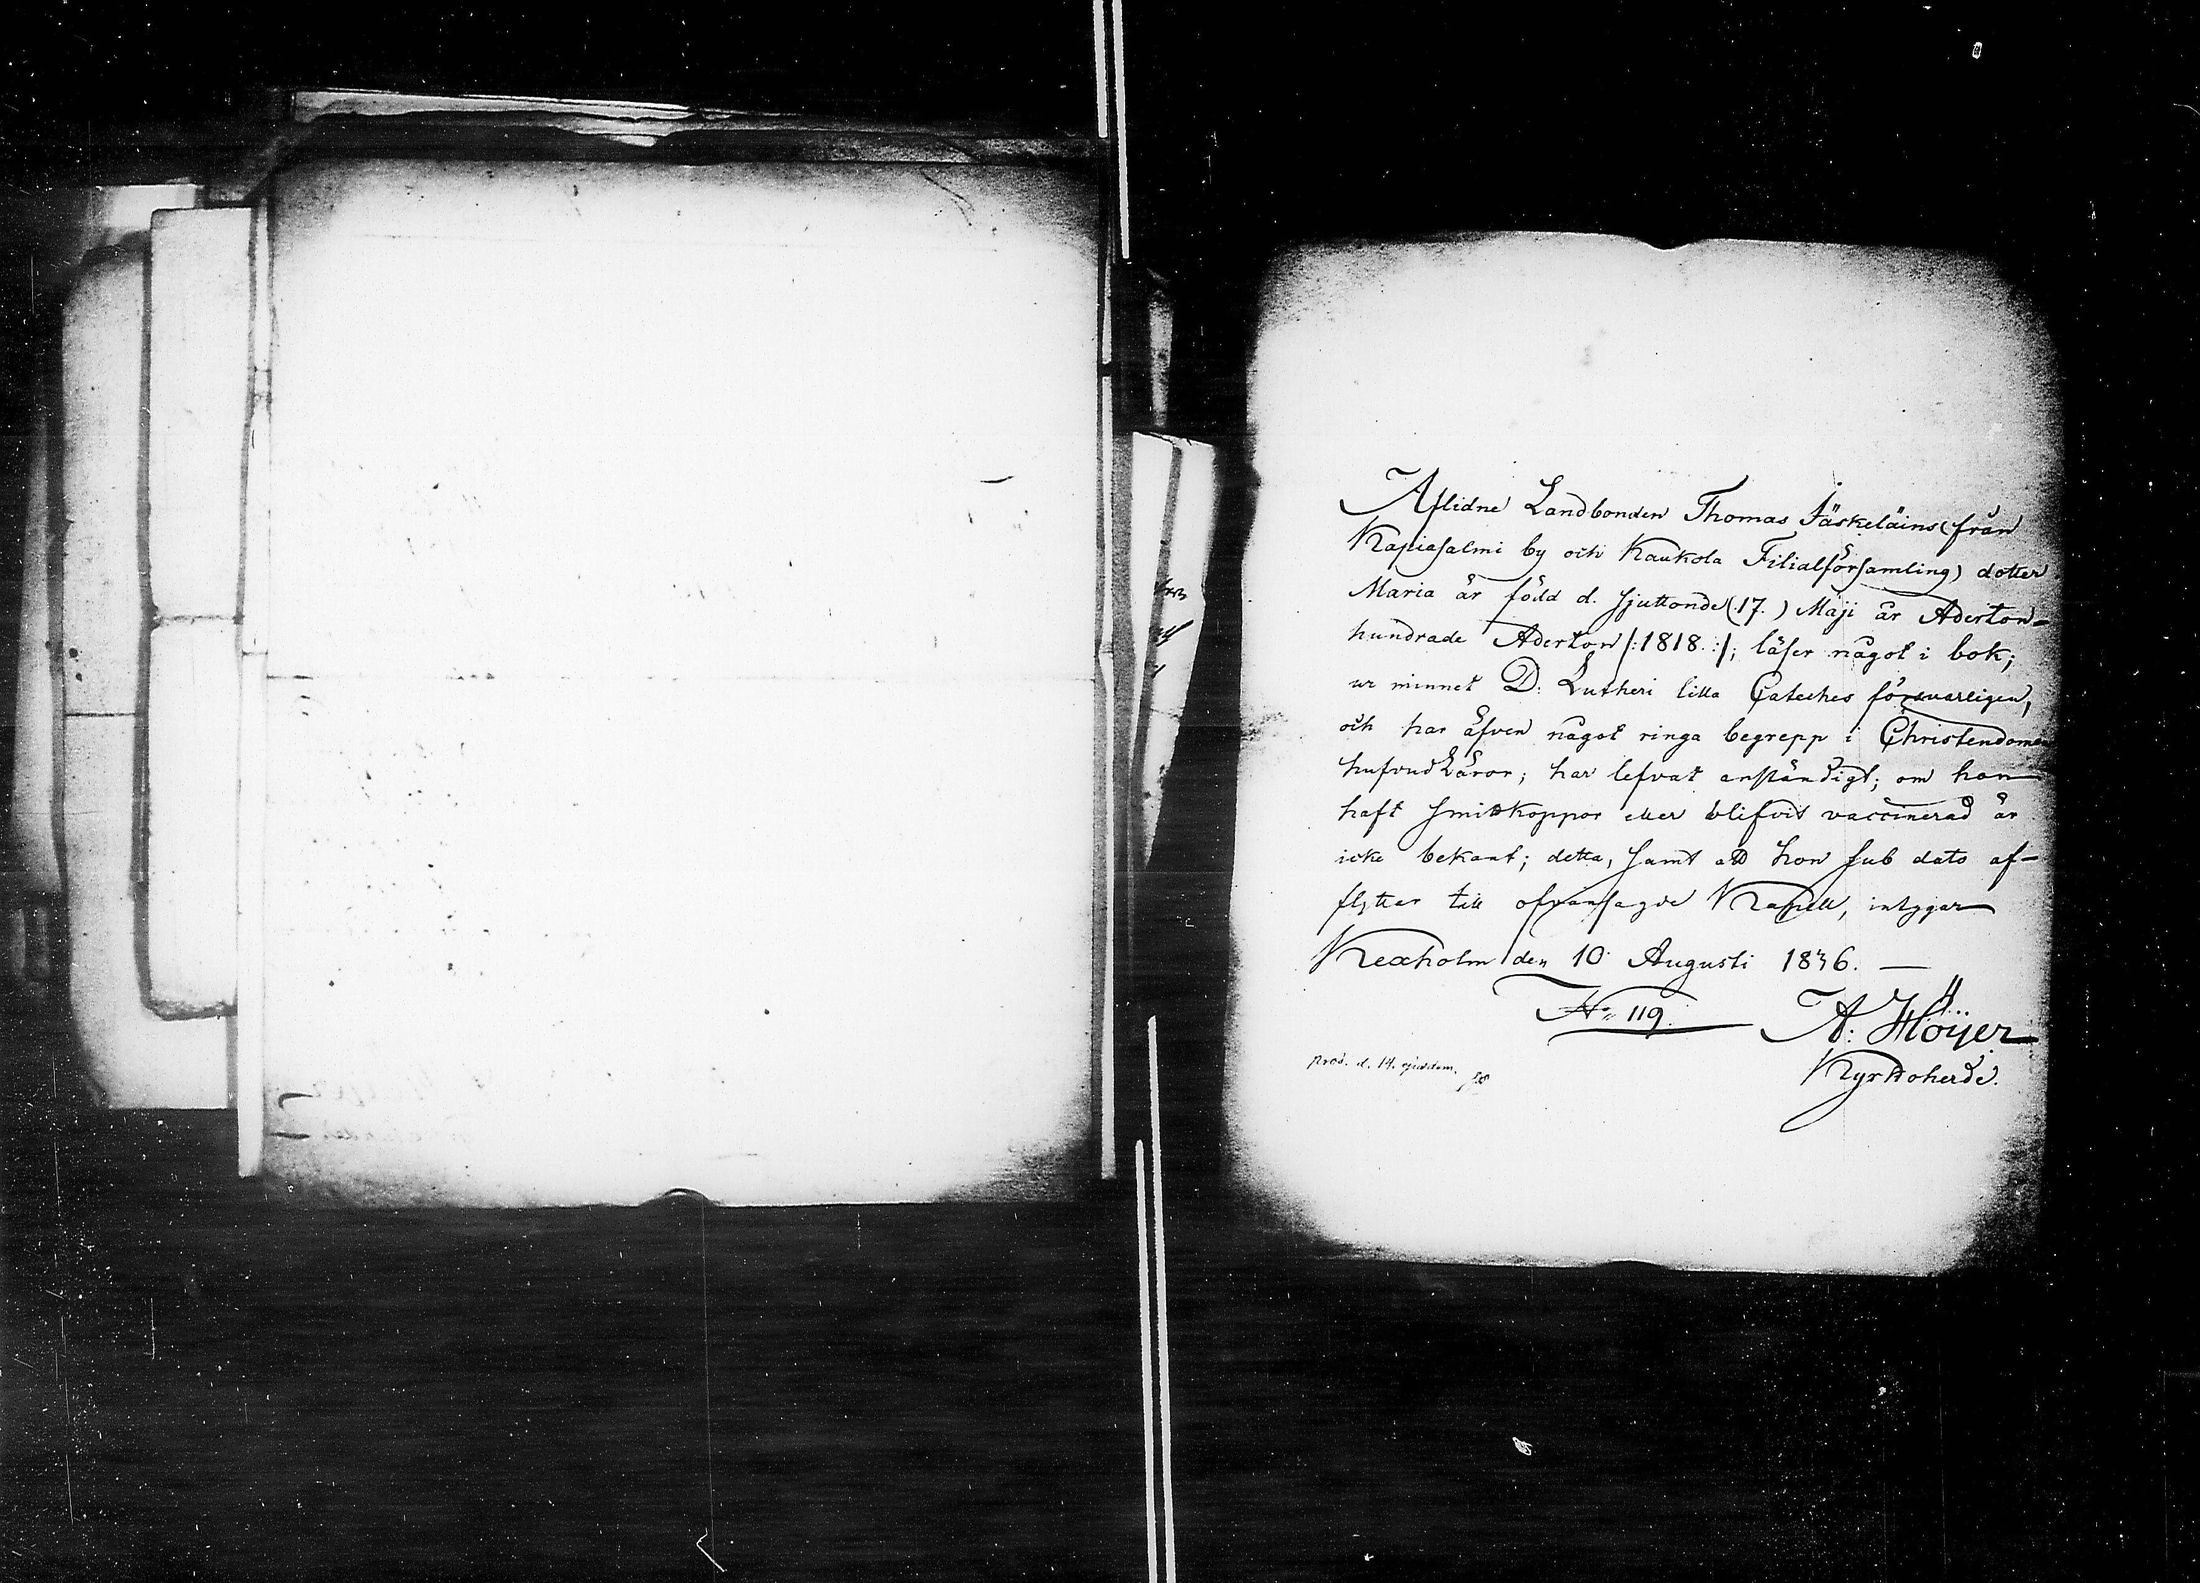 Aflidne Landbonden Thomas Jäskeläins (från
Kapiasalmi by och Kaukola Filialförsamling) dotter
Maria är född d. sjuttonde (17.) Maji år Aderton-
hundrade Aderton /:1818.:/; läser något i bok;
ur minnet D: Lutheri lilla Cateches försvarligen,
och har äfven något ringa begrepp i Christendomen
hufvud Läror; har lefvat anständigt; om hon
haft Smittkoppor eller blifvit vaccinerad är
icke bekant; detta, samt att hon sub dato af-
flyttar till ofvansagde Kapell, intygar
Kexholm den 10 Augusti 1836. —
No 119.
A: Höijer
Kyrkoherde.
prod. d. 14. ejusdem.